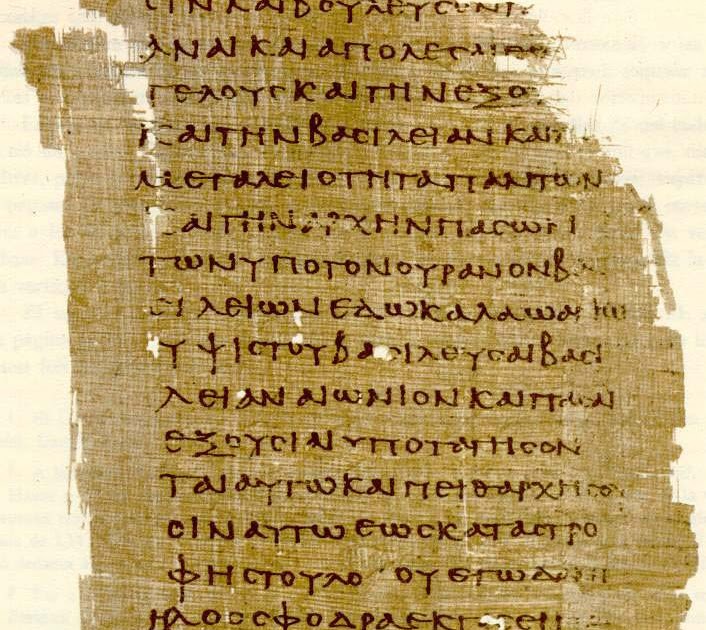 ϹΙΝΚΑΙΒΟΥΛΕΥϹΟΝΤ
ΑΝΑΙΚΑΙΑΠΟΛΕϹΑΙΕΩ
ΤΕΛΟΥϹΚΑΙΤΗΝΕΞΟ
ΚΑΙΤΗΝΒΑϹΙΛΕΙΑΝΚΑΙ
ΜΕΓΑΛΕΙΟΤΗΤΑΠΑΝΤΩΝ
ΚΑΙΤΗΝΑΡΧΗΝΠΑϹΩΝ
ΤΩΝΥΠΟΤΟΝΟΥΡΑΝΟΝΒΑ
ϹΙΛΕΙΩΝΕΔΩΚΑΛΑΩΑΓΙΩ
ΥΨΙϹΤΟΥΒΑϹΙΛΕΥϹΑΙΒΑϹΙ
ΛΕΙΑΝΑΙΩΝΙΟΝΚΑΙΠΑϹΑΙ
ΕΞΟΥϹΙΑΙΥΠΟΤΑΓΗϹΟΝ
ΤΑΙΑΥΤΩΚΑΙΠΕΙΘΑΡΧΗϹΟΥ
ϹΙΝΑΥΤΩΕΩϹΚΑΤΑϹΤΡΟ
ΦΗϹΤΟΥΛΟΓΟΥΕΓΩΔΑΝΙ
ΗΛΟϹϹΦΟΔΡΑΕΚ